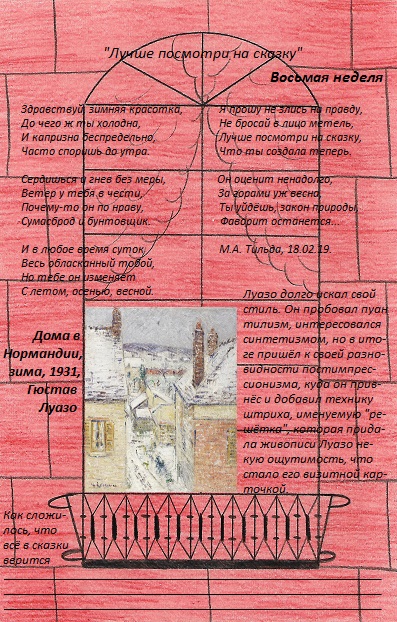 "Лучше посмотри на сказку"
Восьмая неделя
Здравствуй, зимняя красотка,
До чего ж ты холодна,
И капризна беспредельно,
Часто споришь до утра.
Сердишься и гнев без меры,
Ветер у тебя в чести,
Почему-то он по нраву,
Сумасброд и бунтовщик.
И в любое время суток,
Весь обласканный тобой,
Но тебе он изменяет
С летом, осенью, весной.
Я прошу не злись на правду,
Не бросай в лицо метель,
Лучше посмотри на сказку,
Что ты создала теперь.
Он оценит ненадолго,
За горами уж весна,
Ты уйдёшь, закон природы,
Фаворит останется...
М.А. Тильда, 18.02.19.
Дома в
Нормандии,
зима, 1931,
Гюстав
Луазо
Луазо долго искал свой
стиль. Он пробовал пуан
тилизм, интересовался
синтетизмом, но в ито-
ге пришёл к своей разно-
видности постимпрес-
сионизма, куда он прив-
нёс и добавил технику
штриха, именуемую "ре-
шётка", которая прида-
ла живописи Луазо не-
кую ощутимость, что
стало его визитной кар-
точкой.
Как сложи-
лось, что
всё в сказки
верится